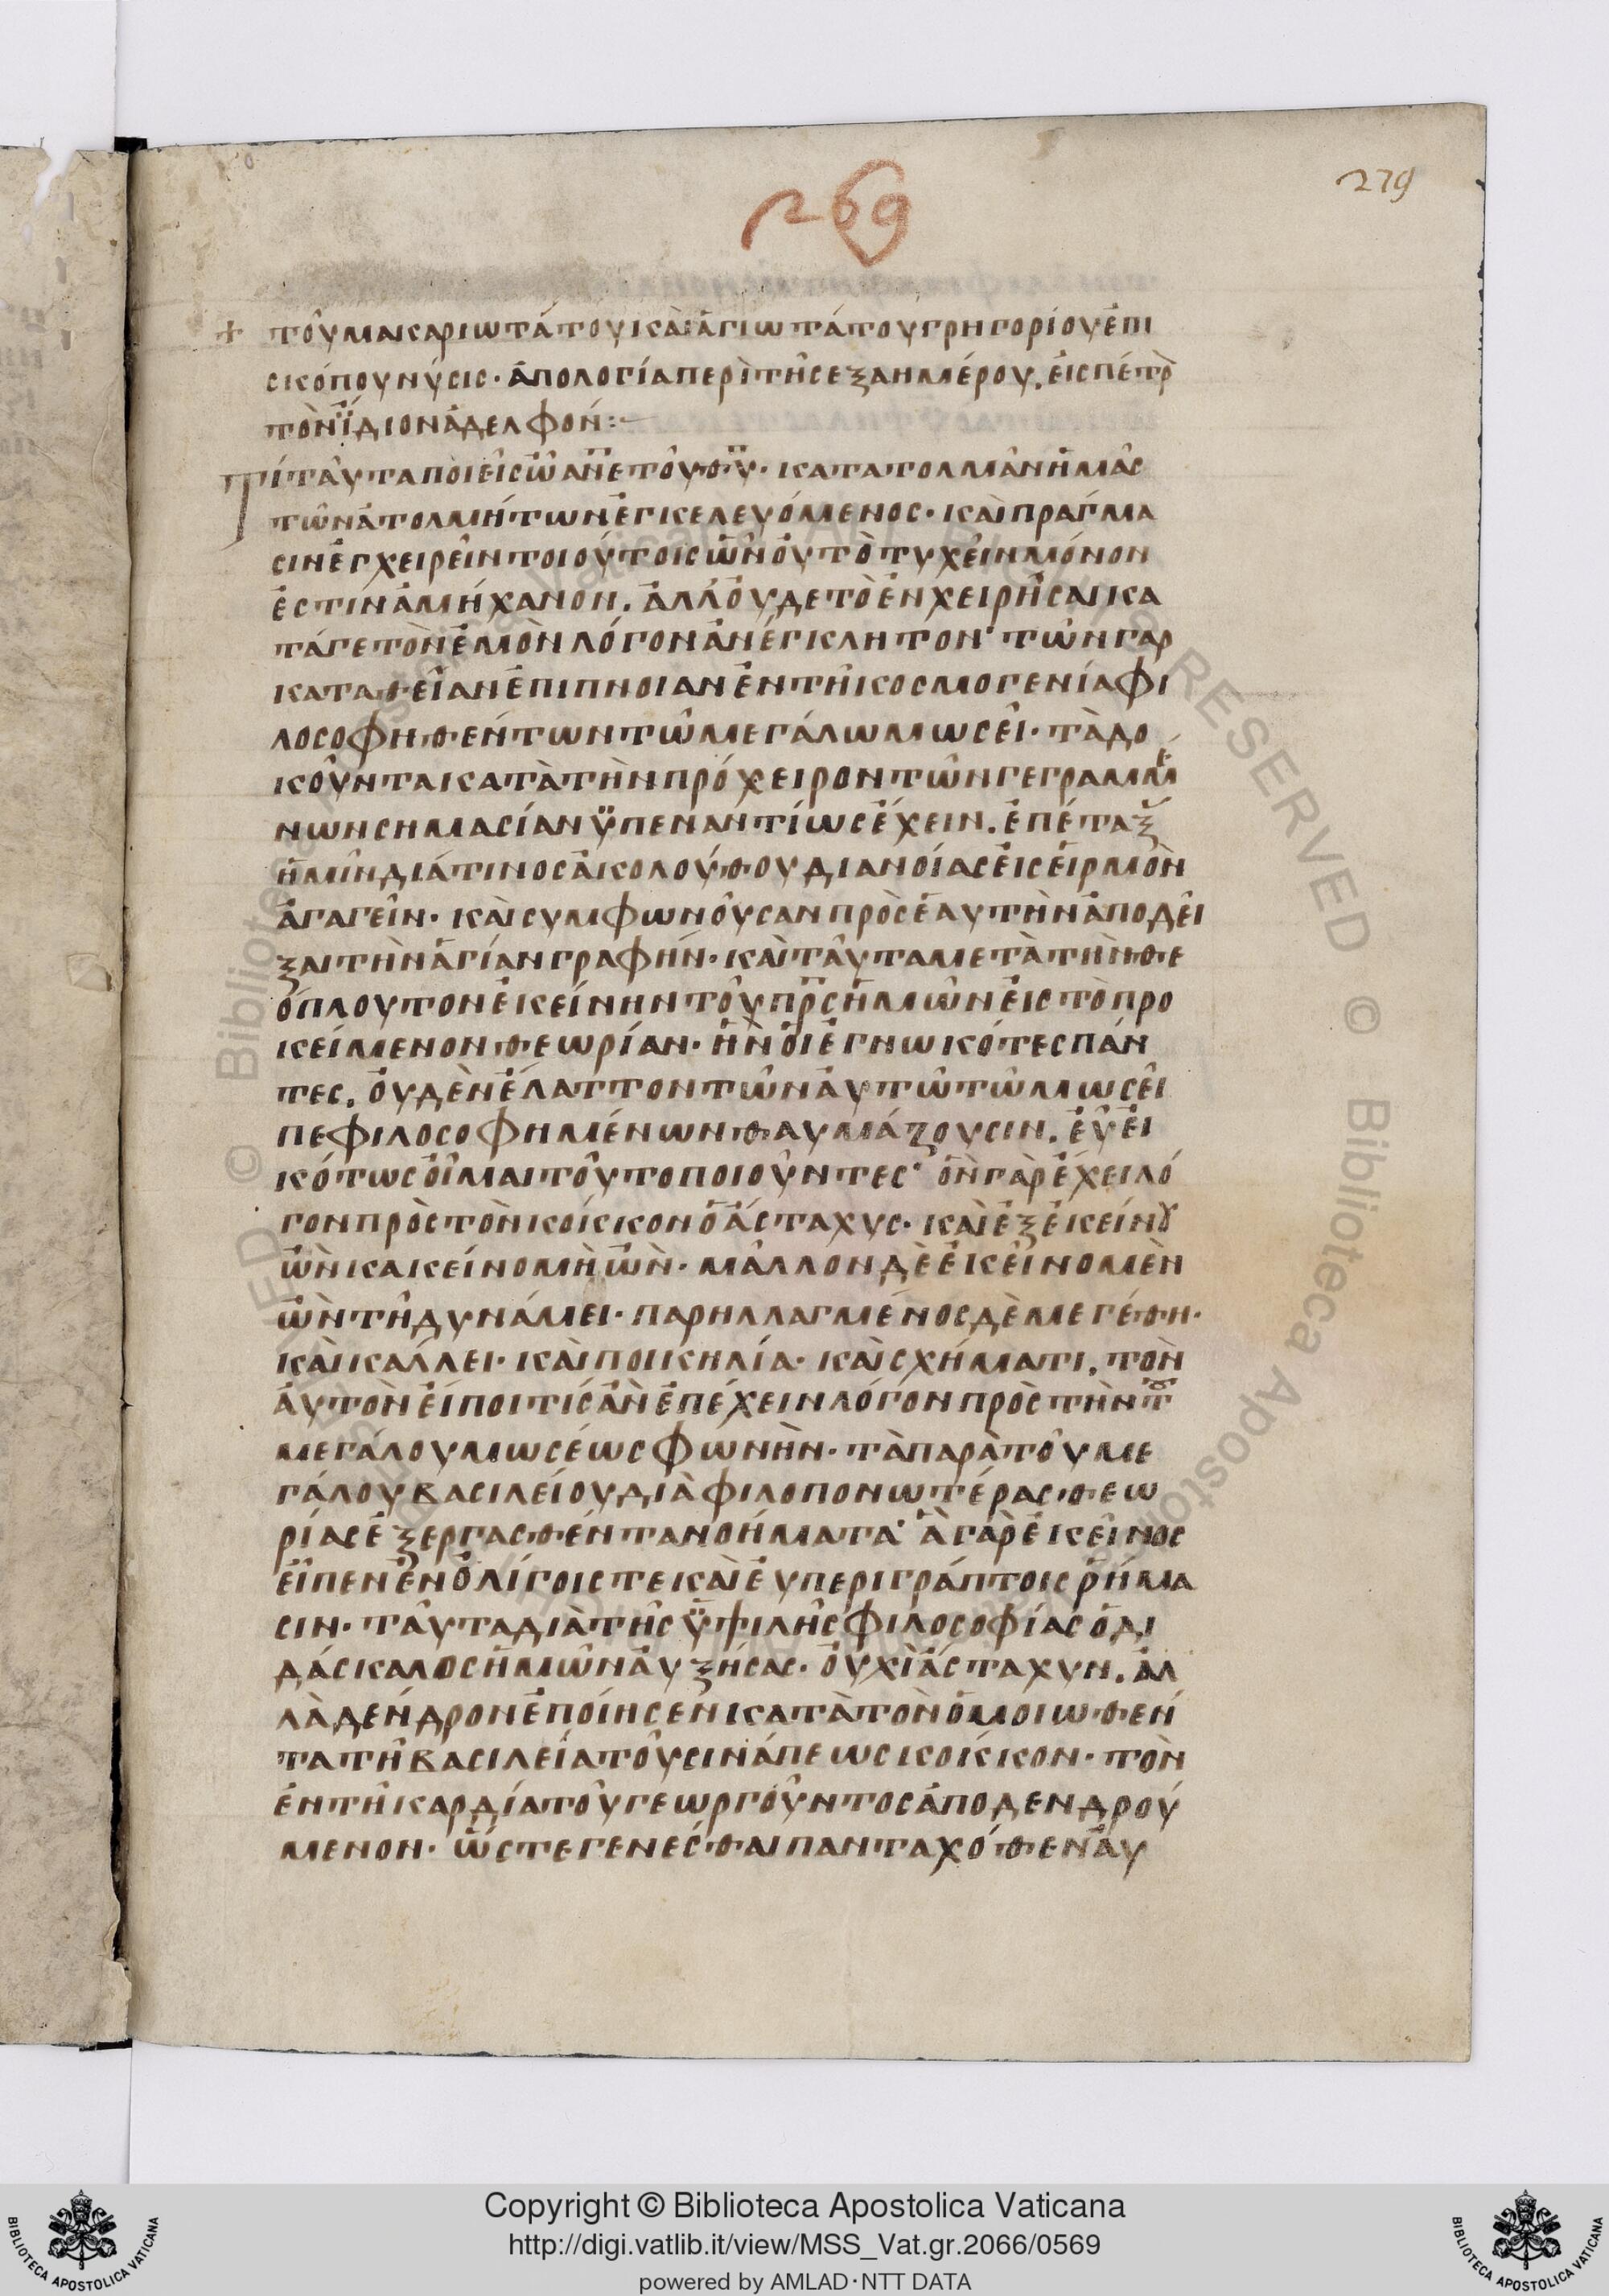 269
279
+ τοῦ μακαριωτάτου καὶ ἁγιωτάτου γρηγορίου ἐπι
σκόπου νύσις· ἀπολογία περὶ τῆς ἑξαημέρου. εἰς πέτρ
τὸν ἴδιον ἀδελφόν:–
Τί ταῦτα ποιεῖς ὦ ἄνε τοῦ θῦ· κατατολμᾶν ἡμᾶς
τῶν ἀτολμήτων ἐγκελευόμενος· καὶ πράγμα
σιν ἐγχειρεῖν τοιούτοις ὧν οὐ τὸ τυχεῖν μόνον
ἐστιν ἀμήχανον. ἀλλ' οὐδε τὸ ἐνχειρῆσαι κα
τά γε τὸν ἐμὸν λόγον ἀνέγκλητον· τῶν γαρ
κατα θείαν ἐπιπνοιαν ἐν τῆ κοσμογενία φι
λοσοφηθέντων τῶ μεγάλω μωσεῖ· τὰ δο
κοῦντα κατὰ τὴν πρόχειρον τῶν γεγραμμέ
νων σημασίαν ὑπεναντίως ἔχειν. ἐπέταξ
ἡμῖν διά τινος ἀκολούθου διανοίας εἰς εἱρμὸν
ἀγαγεῖν· καὶ συμφωνοῦσαν πρὸς ἑαυτὴν ἀποδεῖ
ξαι τὴν ἁγίαν γραφήν· καὶ ταῦτα μετὰ τὴν θε
όπλουτον ἐκείνην τοῦ πρς ἡμῶν εἰς τὸ προ
κείμενον θεωρίαν· ἣν οἱ ἐγνωκότες πάν
τες. οὐδὲν ἔλαττον τῶν αὐτῶ τῶ μωσεῖ
πεφιλοσοφημένων θαυμάζουσιν. εὖ εἰ
κότως οἶμαι τοῦτο ποιοῦντες· ὃν γὰρ ἔχει λό
γον πρὸς τὸν κόκκον ὁ ἄσταχυς· καὶ ἐξ ἐκείνου
ὢν κακείνο μὴ ὤν· μᾶλλον δὲ ἐκεῖνο μὲν
ὢν τῆ δυνάμει· παρηλλαγμένος δὲ μεγέθη·
καὶ κάλλει· καὶ ποικηλία· καὶ σχήματι. τὸν
αὐτὸν εἴποι τίς ἂν ἐπέχειν λόγον πρὸς τὴν τοῦ
μεγάλου μωσέως φωνὴν· τὰ παρὰ τοῦ με
γάλου βασιλείου διὰ φιλοπονωτέρας θεω
ρίας ἐξεργασθέντα νοήματα· ἃ γὰρ ἐκεῖνος
εἶπεν ἐν ὀλίγοις τε καὶ ἐυπεριγράπτοις ῥήμα
σιν· ταῦτα διὰ τῆς ὑψιλῆς φιλοσοφίας ὁ δι
δάσκαλος ἡμῶν αὐξήσας· οὐχὶ ἄσταχυν. ἀλ
λὰ δένδρον ἐποίησεν κατὰ τὸν ὁμοιωθέν
τα τῆ βασιλεία τοῦ σινάπεως κόκκον· τὸν
ἐν τῆ καρδία τοῦ γεωργοῦντος ἀποδενδρού
μενον· ὥστε γενέσθαι πανταχόθεν αὐ
© Biblioteca Apostolica Vaticana
RESERVED
Copyright © Biblioteca Apostolica Vaticana
http://digi.vatlib.it/view/MSS_Vat.gr.2066/0569
powered by AMLAD·NTT DATA
BIBLIOTECA APOSTOLICA VATICANA
BIBLIOTECA APOSTOLICA VATICANA